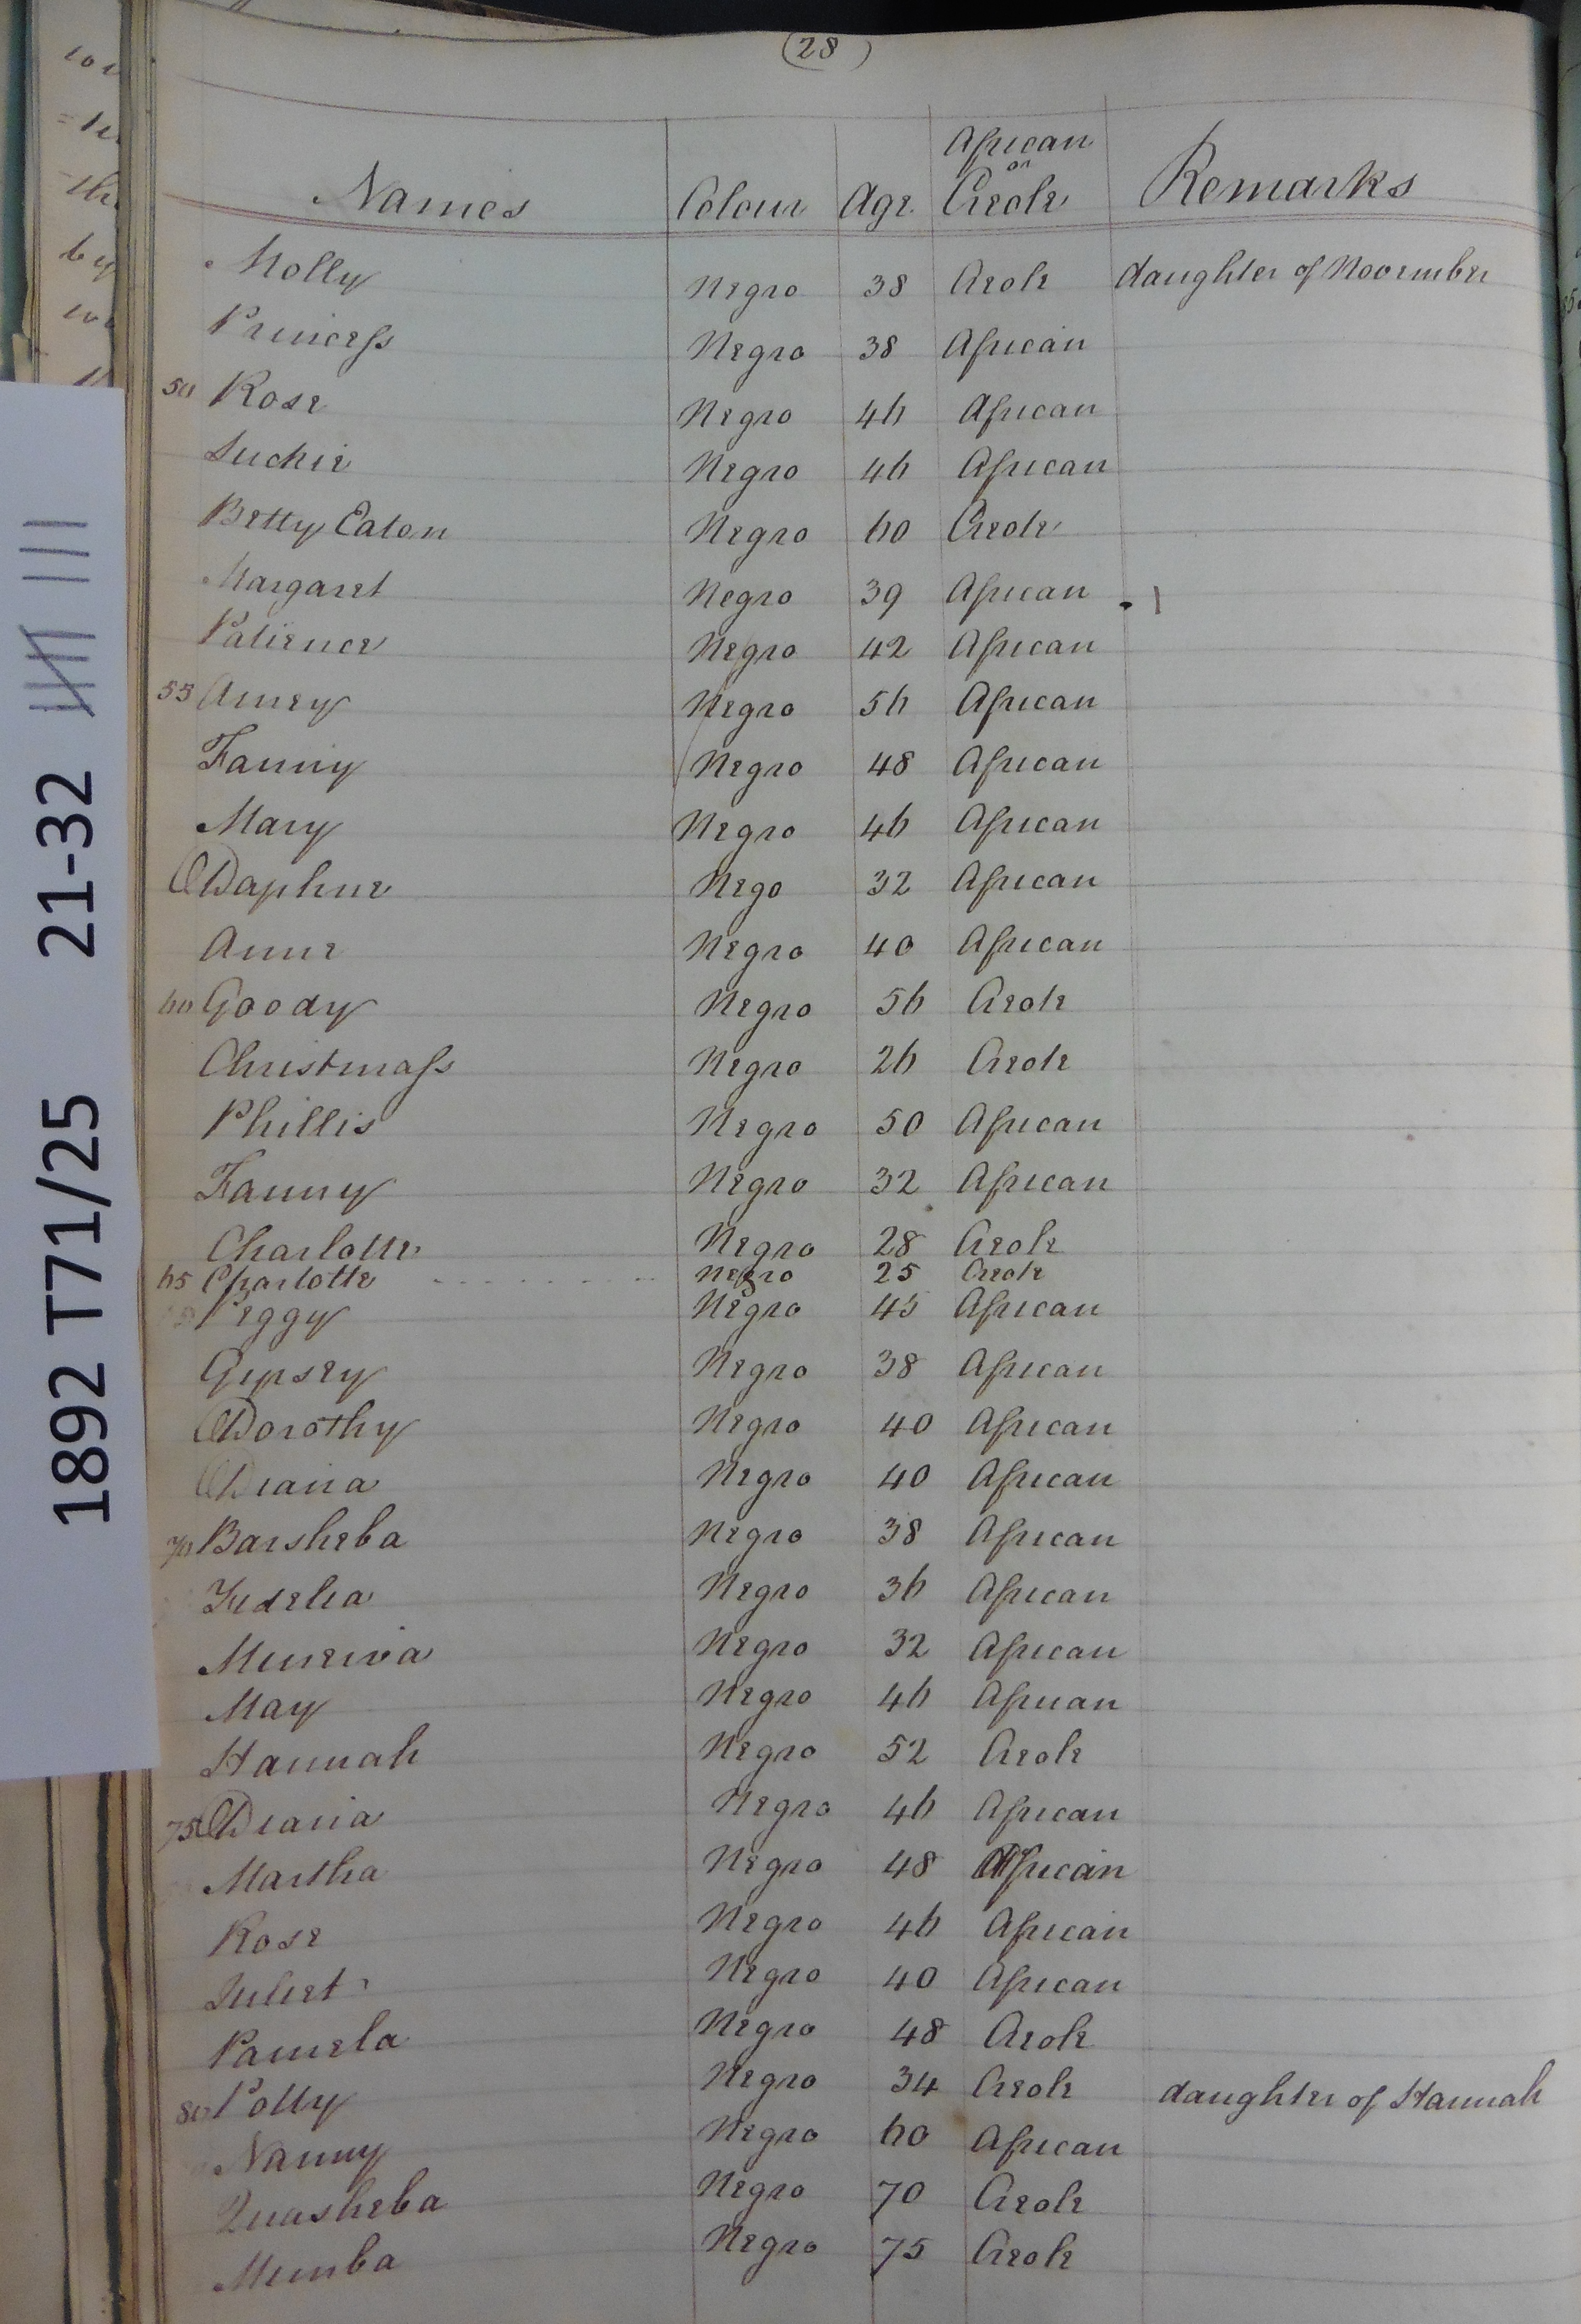 (28)
Names Colour Age African or Creole Remarks
Molly Negro 38 Creole daughter of November
Princess Negro 38 African
50 Rose Negro 46 African
Suckie Negro 46 African
Betty Eaton Negro 60 Creole
Margaret Negro 39 African
Patience Negro 42 African
55 Amey Negro 56 African
Fanny Negro 48 African
Mary Negro 46 African
Daphne Nego 32 African
Anne Negro 40 African
60 Goody Negro 56 Creole
Christmass Negro 26 Creole
Phillis Negro 50 African
Fanny Negro 32 African
Charlotte Negro 28 Creole
65 Charlotte Negro 25 Creole
Peggy Negro 45 African
Gipsey Negro 38 African
Dorothy Negro 40 African
Diana Negro 40 African
70 Barsheba Negro 38 African
Fidelia Negro 36 African
Minerva Negro 32 African
May Negro 46 African
Hannah Negro 52 Creole
75 Diana Negro 46 African
Martha Negro 48 African
Rose Negro 46 African
Juliet Negro 40 African
Pamela Negro 48 Creole
80 Polly Negro 34 Creole daughter of Hannah
Nanny Negro 60 African
Quasheba Negro 70 Creole
Mimba Negro 75 Creole
1892 T71/25 21-32